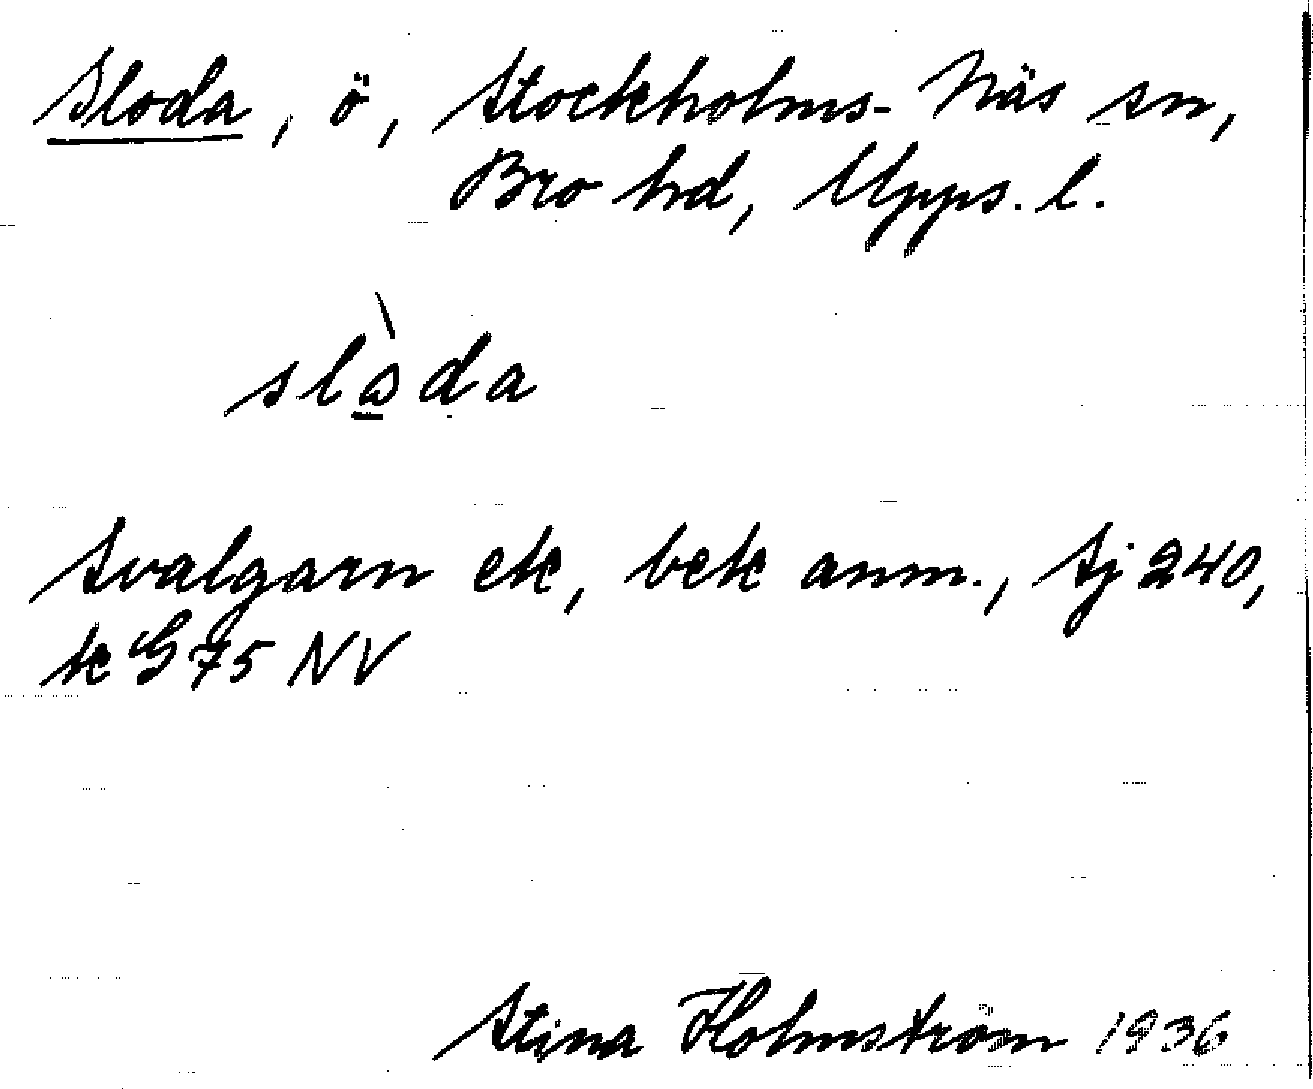 Sloda, ö, Stockholms-Näs sn,
Bro hd, Upps. l.
slàda
Svalgarn ek, bek anm., Sj 240,
k G 75 NV
Stina Holmström 1936